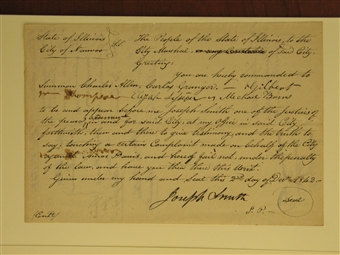 State of Illinois
City of Nauvoo
Sct.
The People of the State of Illinois, to the
City Marshal or any Constable of said City
Greeting
You are hereby commanded to
Summon Charles Allen, Carlos Granger, Gilbert
Thompson & Michael
to be and appear before me Joseph Smith one of the justices of
the peace and for said City at my office in said City
forthwith, then and there to give testimony, and the truth to
say, touching a certain Complaint made on behalf of the City
against Amos Davis, and hereof fail not, under the penalty
of the law, and have you then there this Writ.
Given under my hand and Seal this 2nd day of Decr. 1842.
Joseph Smith
J. P.
Seal